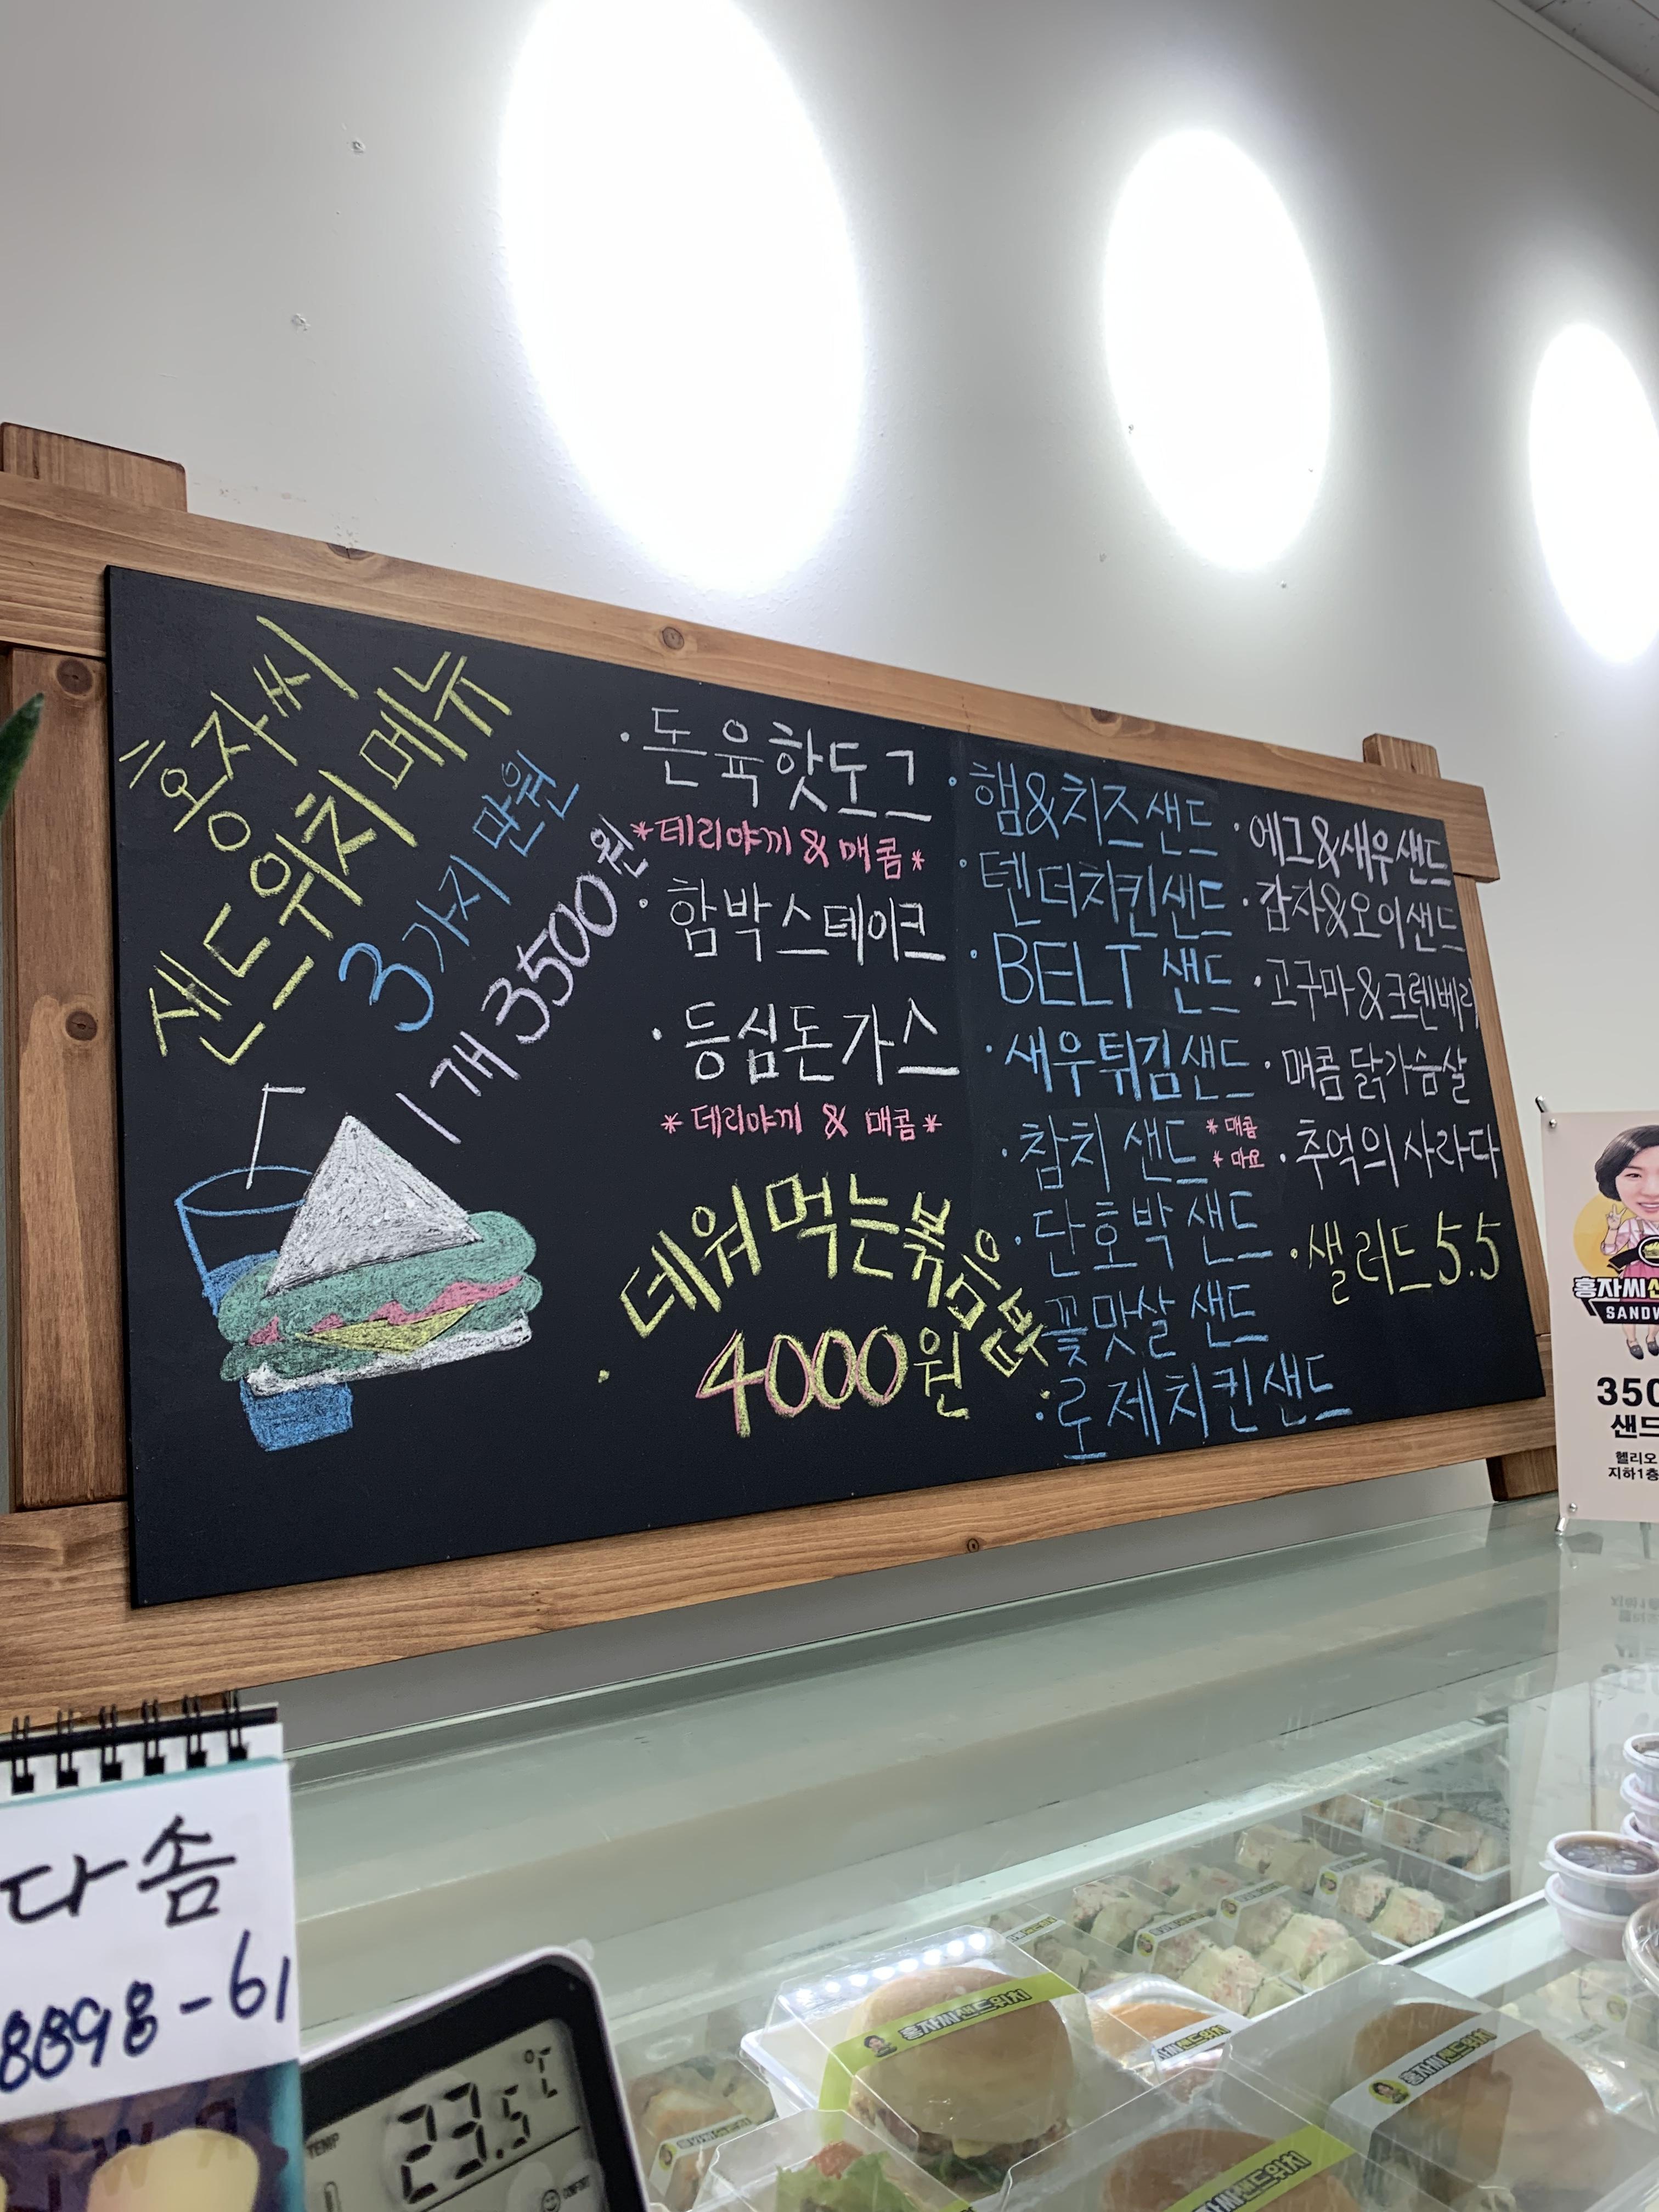 홍자씨
샌드위치 메뉴
3가지 만원
1개 3500원
· 돈육핫도그
*데리야끼 & 매콤*
· 함박스테이크
· 등심돈가스
* 데리야끼 & 매콤 *
· 데워먹는볶음밥
4000원
· 햄&치즈샌드
· 텐더치킨샌드
· BELT 샌드
· 새우튀김샌드
· 참치 샌드 * 매콤
* 마요
· 단호박 샌드
꽃맛살 샌드
· 로제치킨샌드
· 에그&새우샌드
· 감자&오이샌드
· 고구마&크렌베리
· 매콤 닭가슴살
· 추억의 사라다
· 샐러드 5.5
홍자씨
SANDW
350
샌드
헬리오
지하1층
다솜
8898-61
TEMP
23.5℃
COMFORT
홍자씨샌드위치
홍자씨샌드위치
홍자씨샌드위치